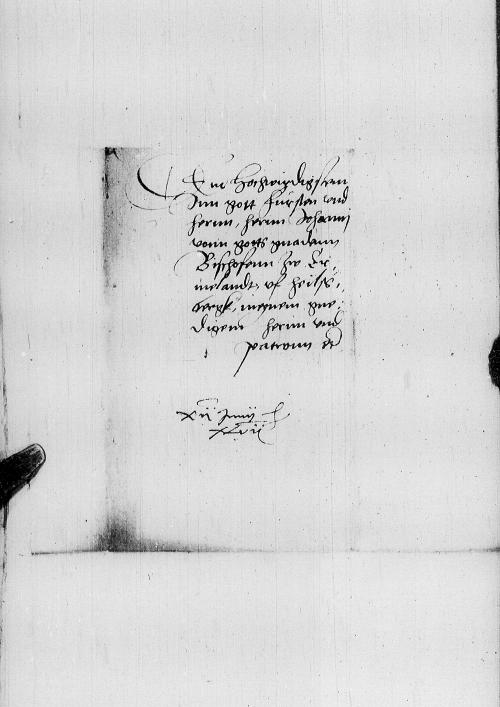 Dem Hochwirdigsten
Inn gott Fursten vnd
hernn, hernn Johanni
vonn gotts gnadenn
Bischofenn zw Er
melandt, vf heils,
bergk, meynem gne,
digem hernn vnd
patronn etc
XII Junij
XLVII